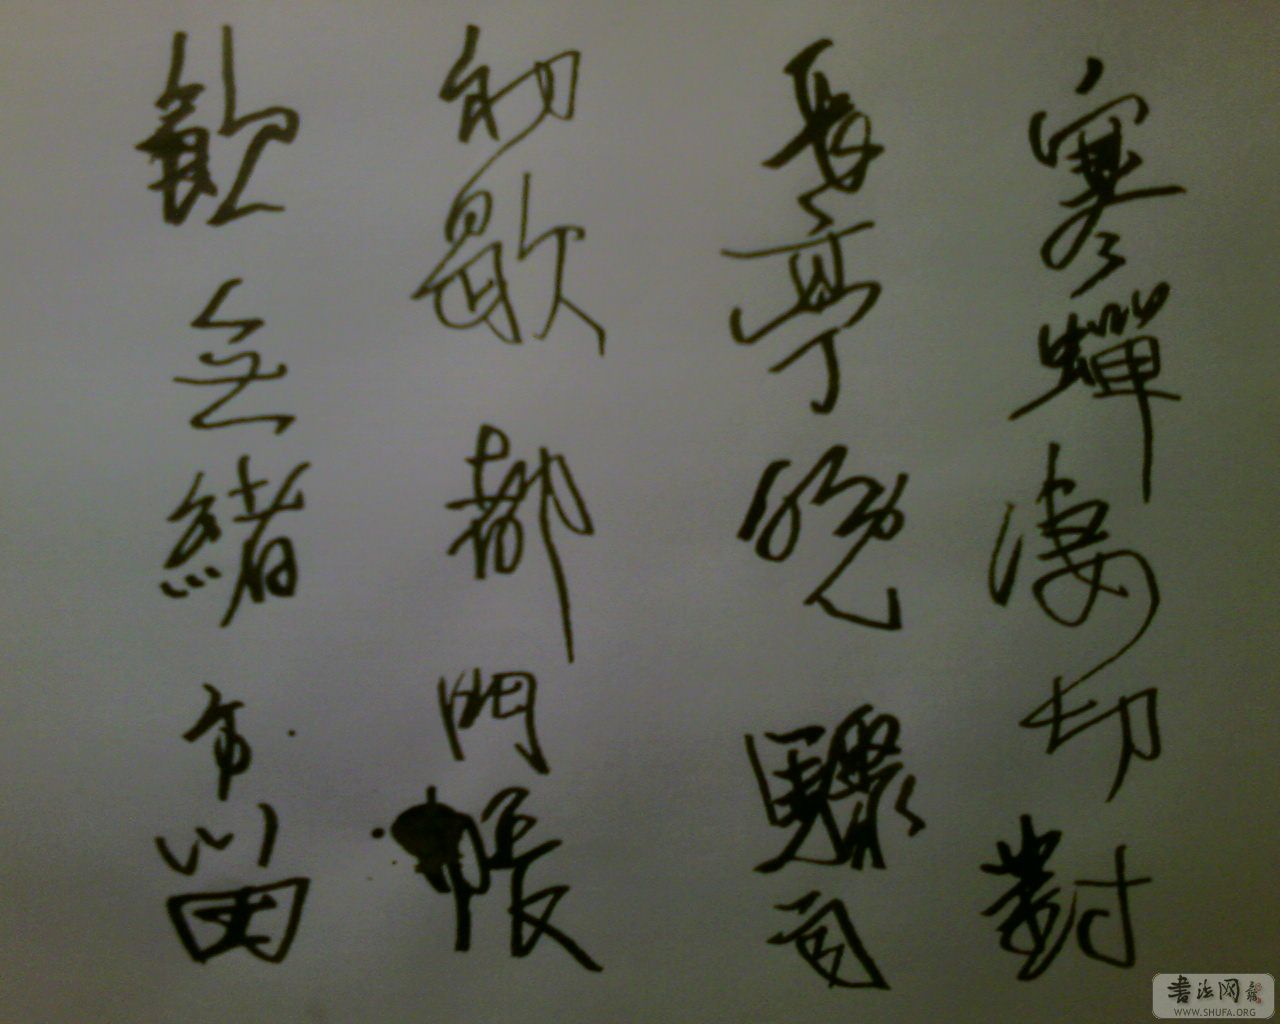 寒蟬凄切對
長亭晚驟雨
初歇都門帳
飲無緒方留
書法网
WWW.SHUFA.ORG